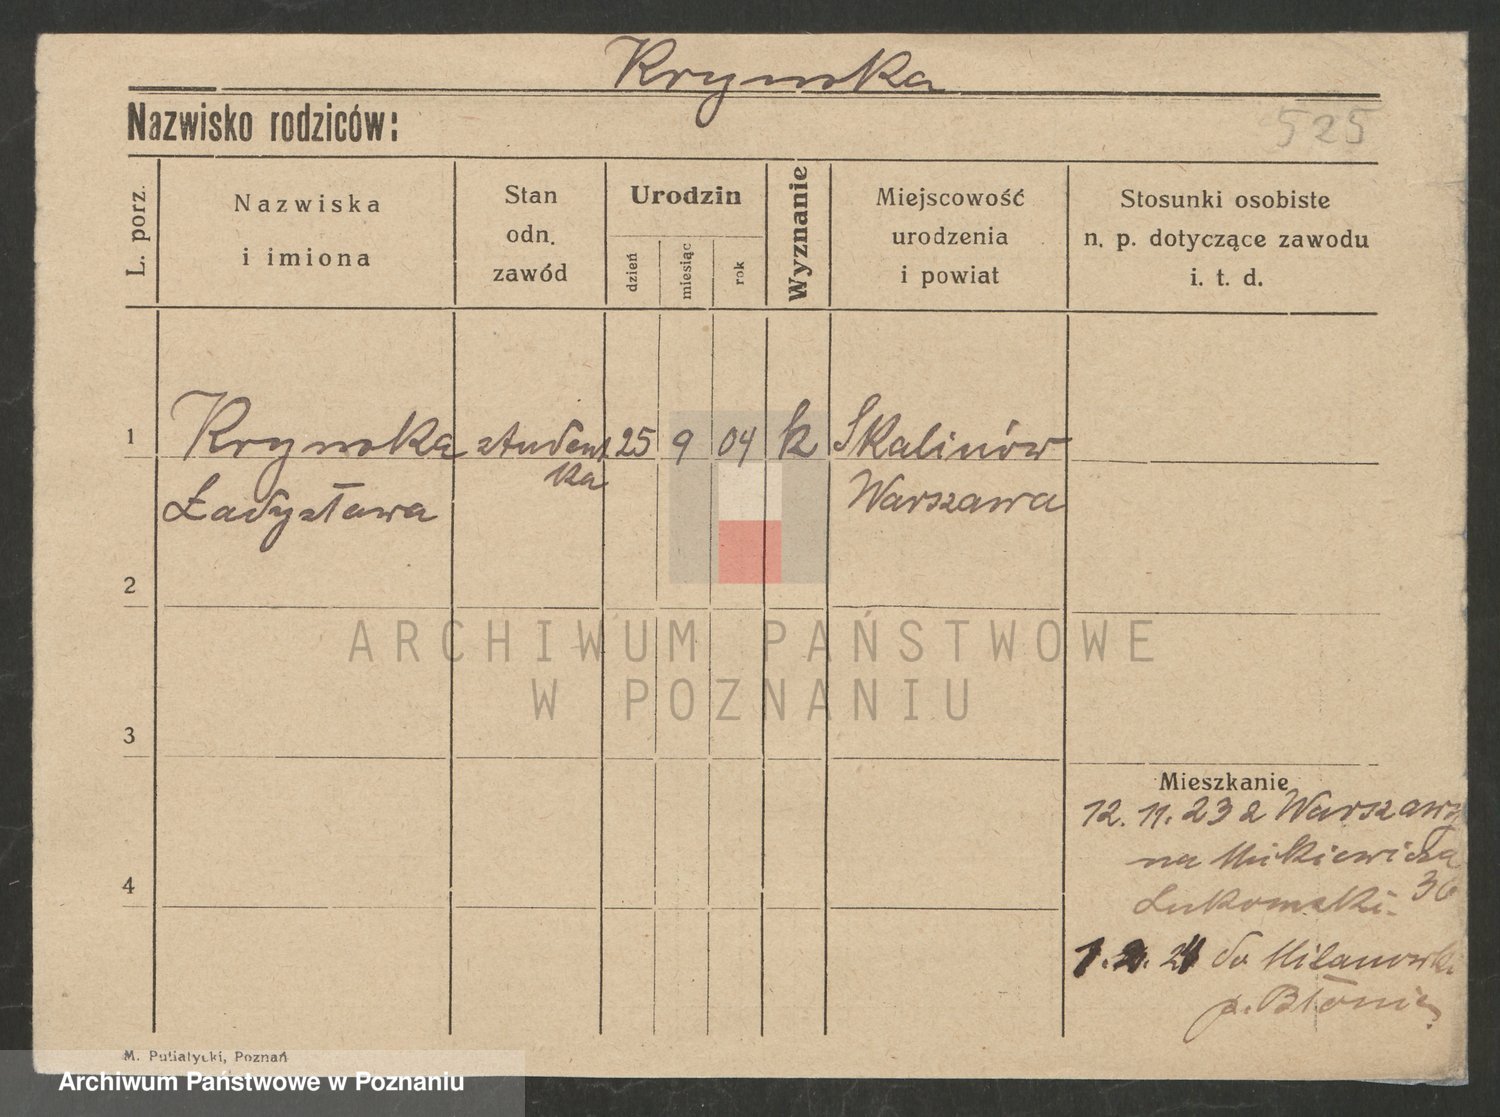 Krynska
Nazwisko rodziców:
525
L. porz.
Nazwiska
i imiona
Stan
odn.
zawód
Urodzin
dzień
miesiąc
rok
Wyznanie
Miejscowość
urodzenia
i powiat
Stosunki osobiste
n. p. dotyczące zawodu
i. t. d.
1 Krynska student 25 9 04 k Skalinów
ka
Ładysława Warszawa
2
3
4
Mieszkanie
12. 11. 23 z Warszawy
na Mickiewicza
36
Lukomski.
1. 2. 24 do Milanówka
p. Błonie
M. Putiatycki, Poznań
ARCHIWUM PAŃSTWOWE
W POZNANIU
Archiwum Państwowe w Poznaniu